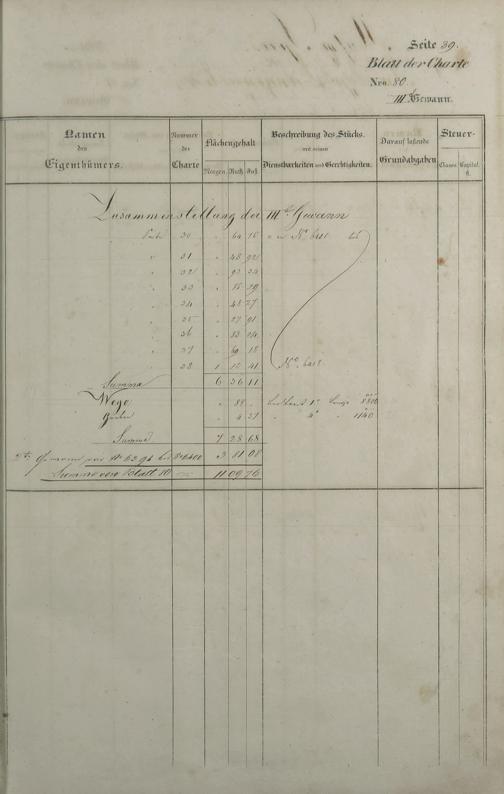 Seite 39.
Blatt der Charte
Nro. 80.
III.te Gewann.
Namen des Eigenthümers.
Nummer der Charte
Flächengehalt
Morgen. Ruth. Fuß.
Beschreibung des Stücks. mit seinen Dienstbarkeiten und Gerechtigkeiten.
Darauf lastende Grundabgaben
Steuer-
Classe. Capital. fl.
Zusammenstellung der III.ten Gewann
Seite 30 " 64 16 No. bis
" 31 " 48 92
" 32 " 93 34
" 33 " 39
" 34 " 48 27
" 35 " 27 91
" 36 " 83 04
" 37 " 69 18
" 38 1 41 No.
Summa 6 36 11
Wege " 88 " 1 Länge 8800
" 4 57 " 4 " 1140
Summa 7 28 68
Gewann von No. bis 3 81 08
Summa von Blatt 80 11 09 76